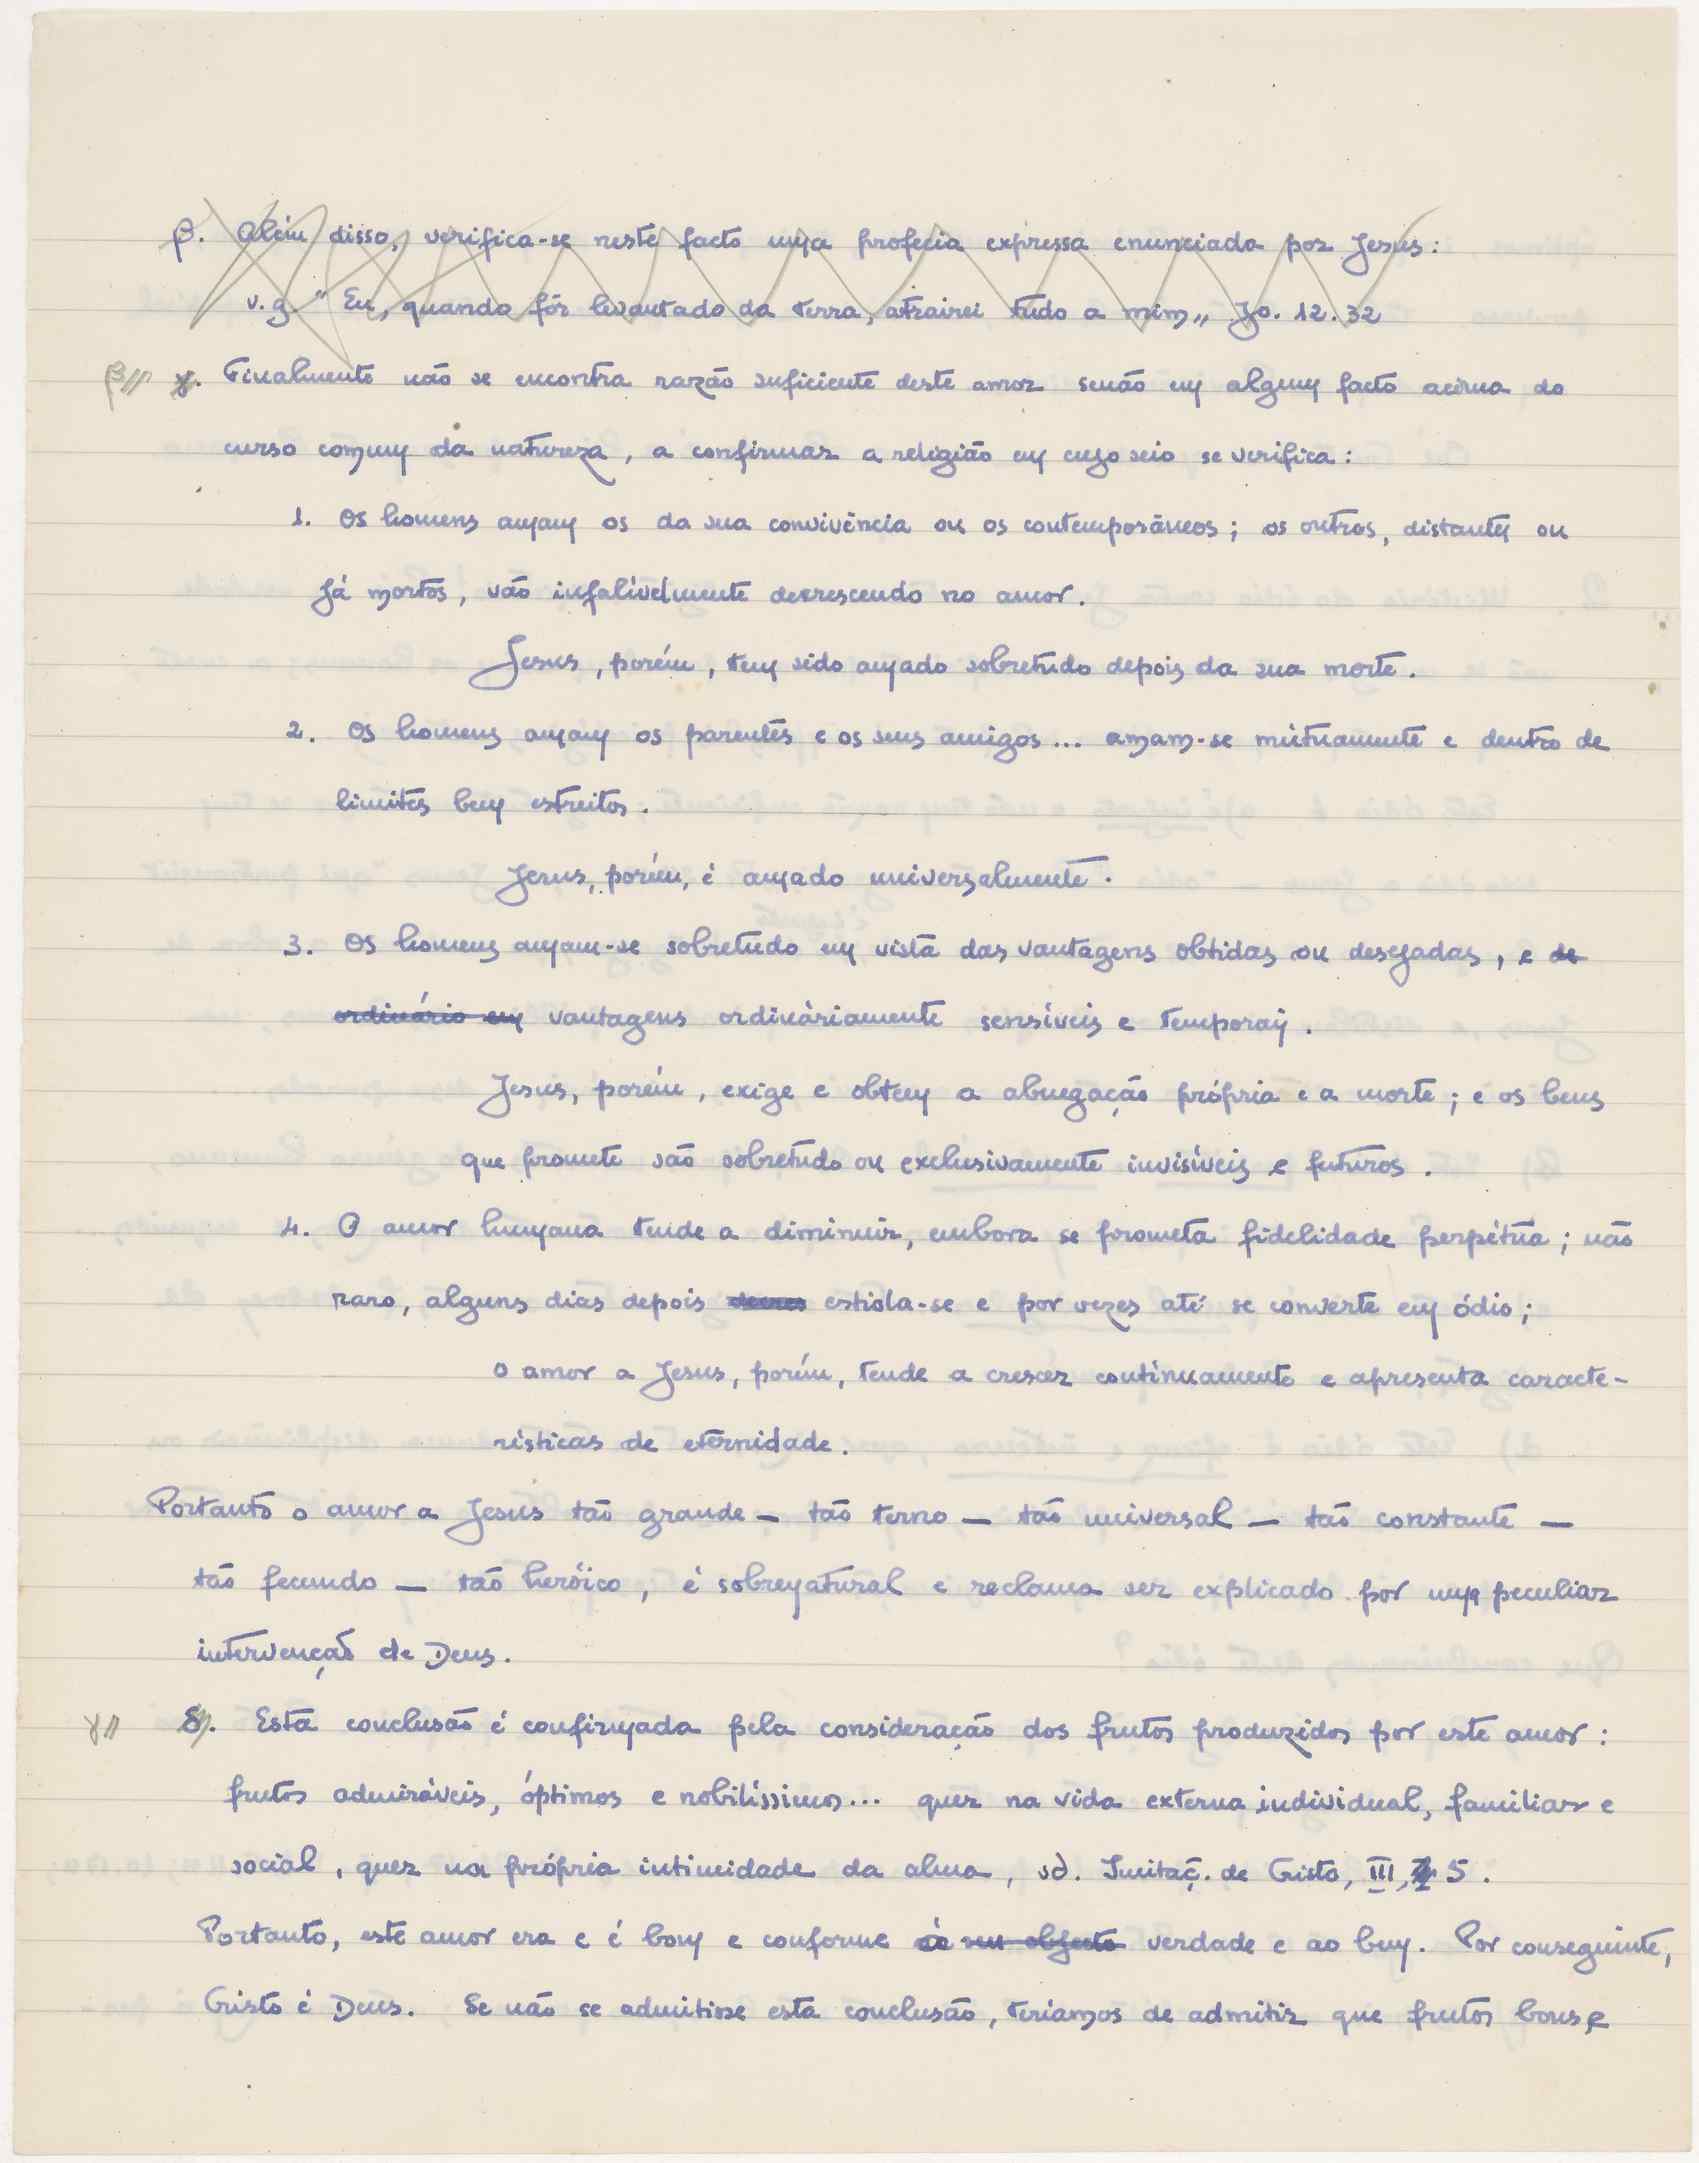 β. Além disso, verifica-se neste facto uma profecia expressa enunciada por Jesus:
v.g. "Eu, quando fôr levantado da terra, atrairei tudo a mim„ Jo. 12.32
β// γ. Finalmente não se encontra razão suficiente deste amor senão em algum facto acima do
curso comum da natureza, a confirmar a religião em cujo seio se verifica:
1. Os homens amam os da sua convivência ou os contemporâneos; os outros, distantes ou
já mortos, vão infalívelmente decrescendo no amor.
Jesus, porém, tem sido amado sobretudo depois da sua morte.
2. Os homens amam os parentes e os seus amigos... amam-se mùtuamente e dentro de
limites bem estreitos.
Jesus, porém, é amado universalmente.
3. Os homens amam-se sobretudo em vista das vantagens obtidas ou desejadas, e de
ordinário em vantagens ordinàriamente sensíveis e temporais.
Jesus, porém, exige e obtem a abnegação própria e a morte; e os bens
que promete são sobretudo ou exclusivamente invisíveis e futuros.
4. O amor humano tende a diminuir, embora se prometa fidelidade perpétua; não
raro, alguns dias depois estiola-se e por vezes até se converte em ódio;
o amor a Jesus, porém, tende a crescer contìnuamente e apresenta caracte-
rísticas de eternidade.
Portanto o amor a Jesus tão grande — tão terno — tão universal — tão constante —
tão fecundo — tão heróico, é sobrenatural e reclama ser explicado por uma peculiar
intervenção de Deus.
γ// δ. Esta conclusão é confirmada pela consideração dos frutos produzidos por este amor:
frutos admiráveis, óptimos e nobilíssimos... quer na vida externa individual, familiar e
social, quer na própria intimidade da alma, vd. Imitaç. de Cristo, III, 5.
Portanto, este amor era e é bom e conforme à seu objecto verdade e ao bem. Por conseguinte,
Cristo é Deus. Se não se admitisse esta conclusão, teríamos de admitir que frutos bons e